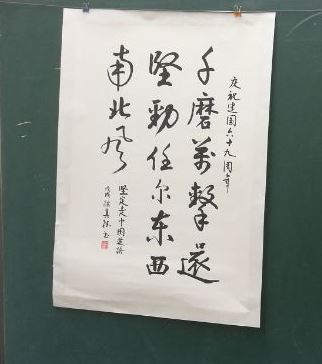 庆祝建国六十九周年
千磨万击还
坚劲任尔东西
南北风
坚定走中国道路
戊戌